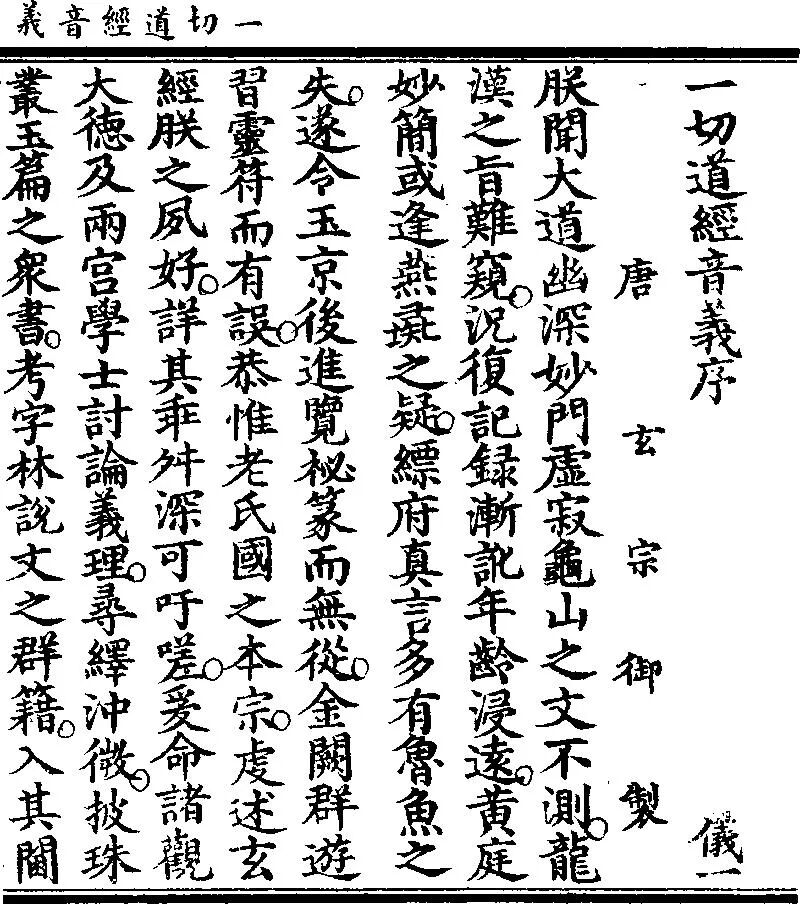 一切道經音義
一切道經音義序 儀一
唐玄宗御製
朕聞大道幽深妙門虛寂龜山之文不測。龍
漢之旨難窺。況復記録漸訛年齡浸遠。黃庭
妙簡或逢燕之疑。縹府真言多有魯魚之
失。遂令玉京後進覽祕篆而無從。金闕群遊
習靈符而有誤。恭惟老氏國之本宗。虔述玄
經朕之夙好。詳其乖舛深可吁嗟。爰命諸觀
大德及兩宮學士討論義理。尋繹沖微。披珠
叢玉篇之衆書。考字林說文之群籍。入其閫